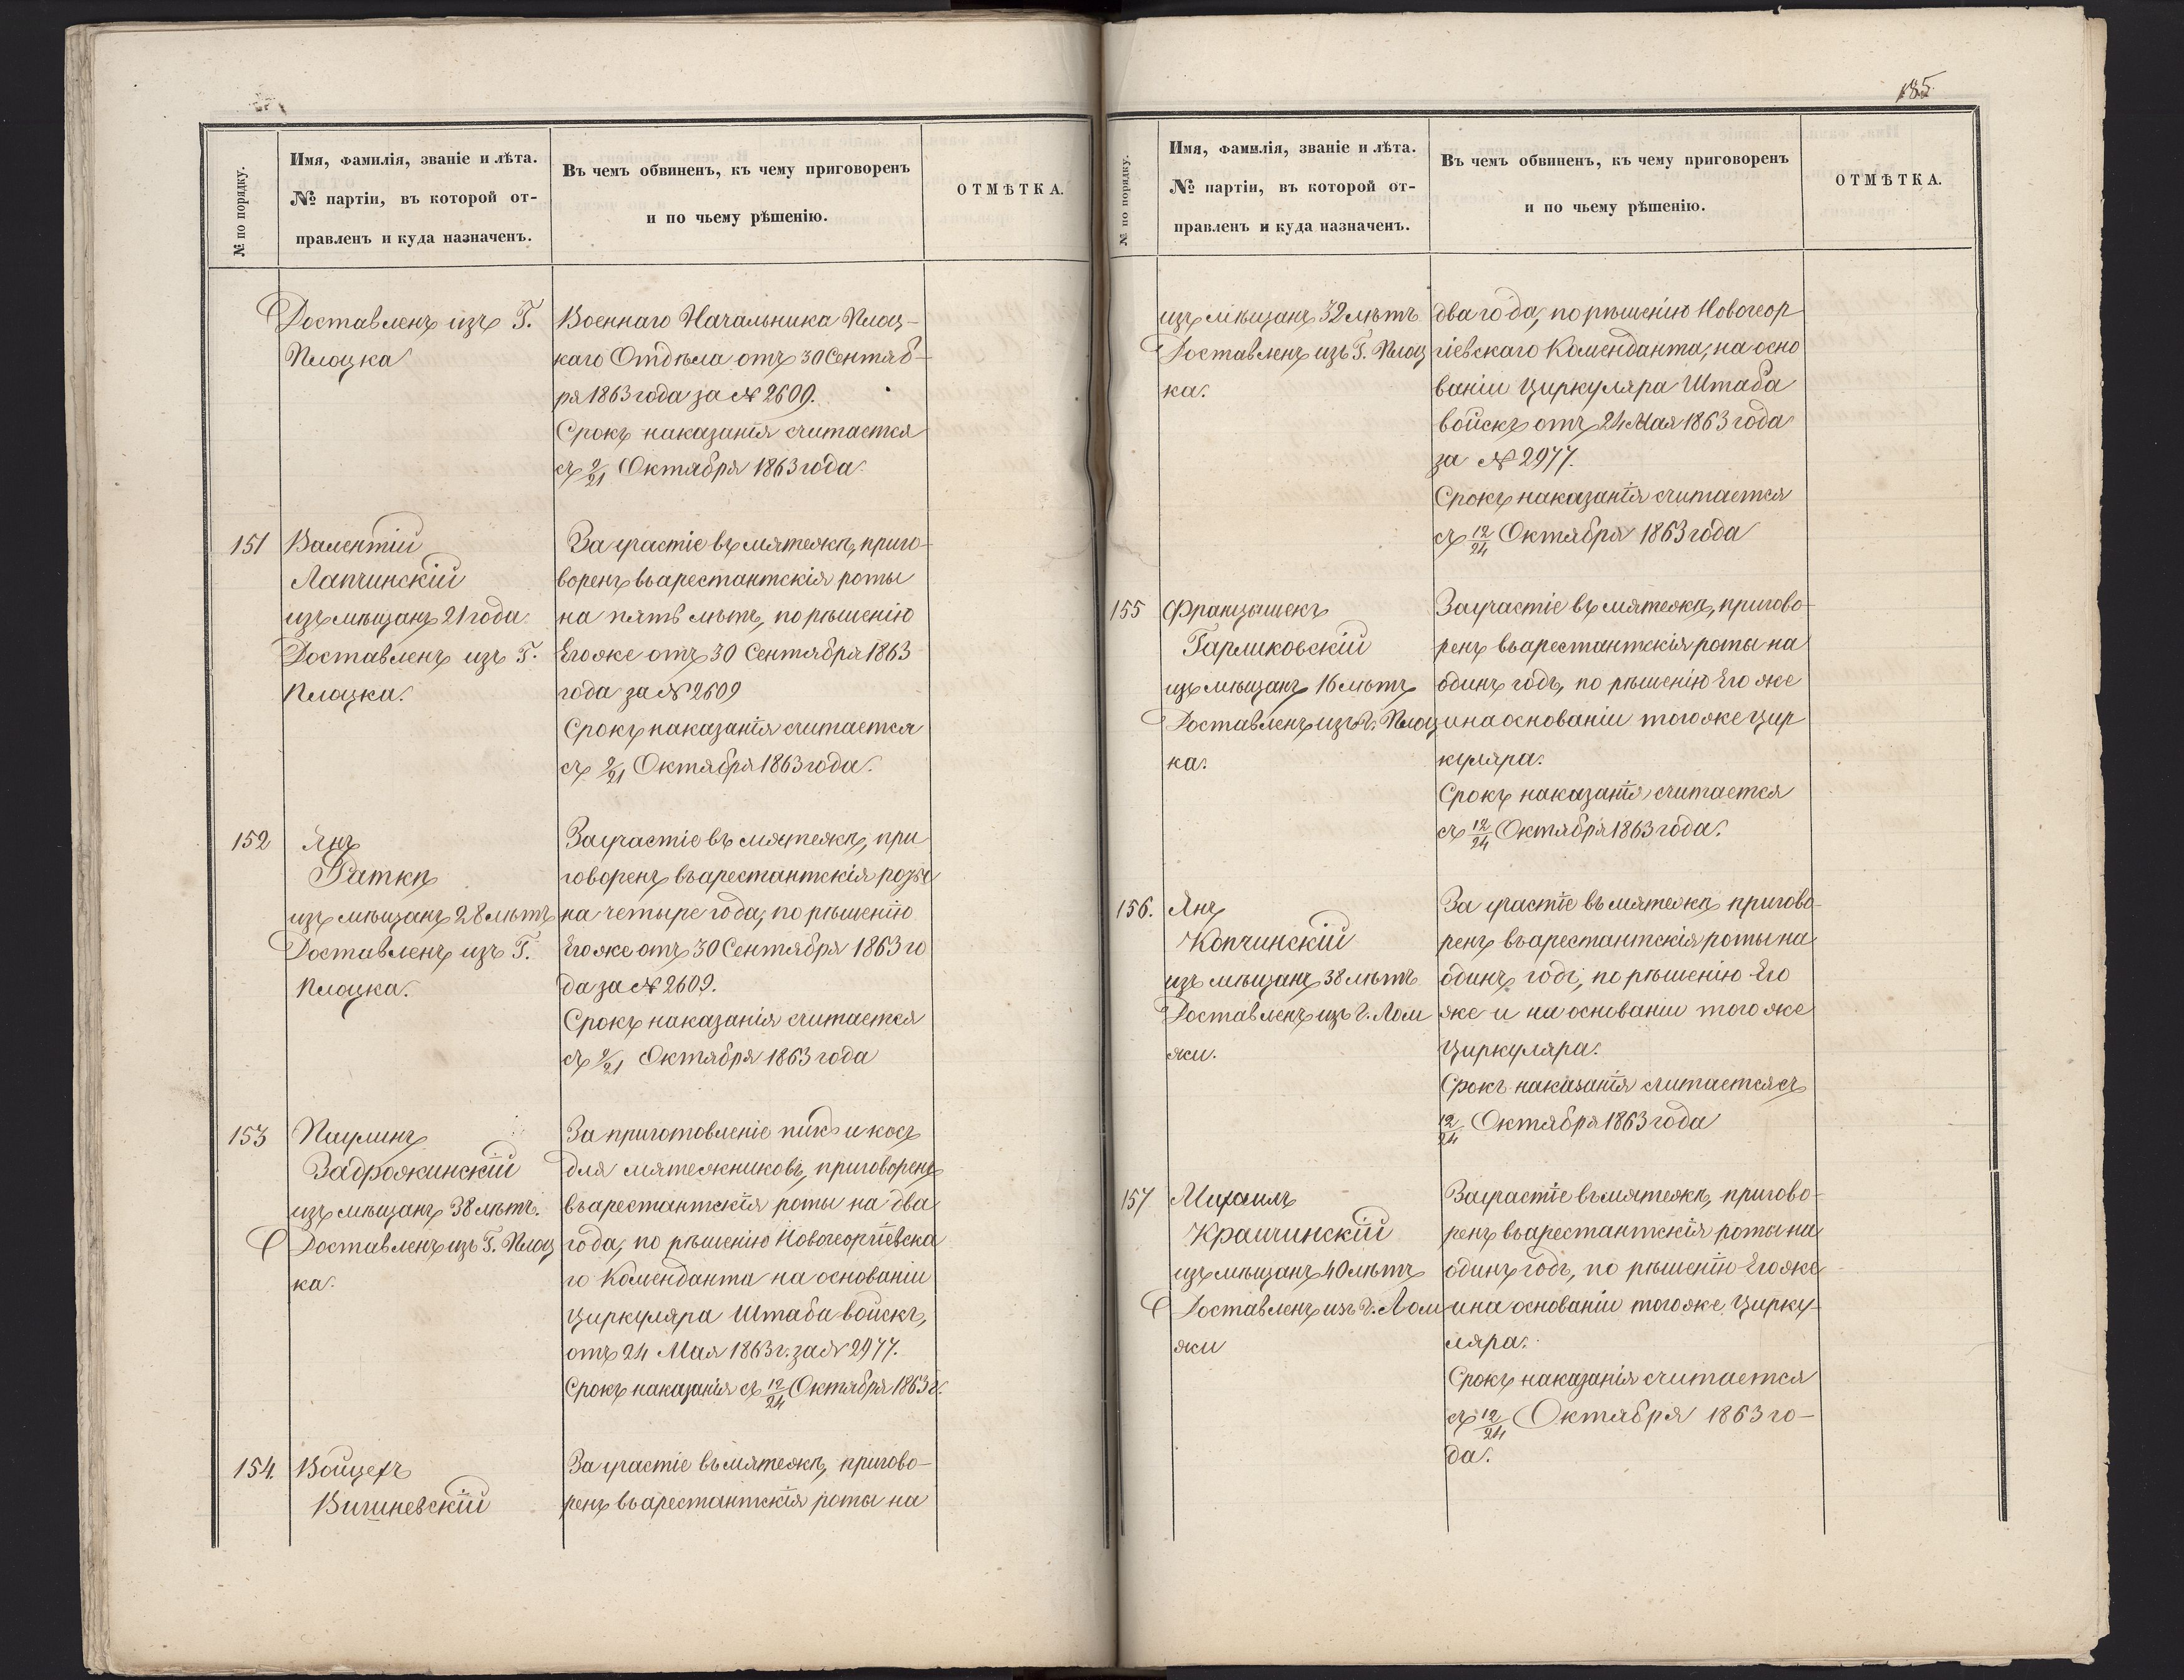 185
№ по порядку.
Имя, фамилія, званіе и лѣта.
№ партіи, въ которой от-
правленъ и куда назначенъ.
Въ чемъ обвиненъ, къ чему приговоренъ
и по чьему рѣшенію.
ОТМѢТКА.
Доставленъ изъ Г.
Плоцка
Военнаго Начальника Плоц-
каго Отдѣла отъ 30 Сентяб-
ря 1863 года за № 2609.
Срокъ наказанія считается
съ 9/21 Октября 1863 года.
151
Валентій
Лапчинскій
изъ мѣщанъ 21 года.
Доставленъ изъ Г.
Плоцка.
За участіе въ мятежѣ, приго-
воренъ въ арестантскія роты
на пять лѣтъ, по рѣшенію
Его же отъ 30 Сентября 1863
года за № 2609
Срокъ наказанія считается
съ 9/21 Октября 1863 года.
152
Янъ
Ратке
изъ мѣщанъ 28 лѣтъ
Доставленъ изъ Г.
Плоцка.
За участіе въ мятежѣ, при
говоренъ въ арестантскія роты
на четыре года, по рѣшенію
Его же отъ 30 Сентября 1863 го
да за № 2609.
Срокъ наказанія считается
съ 9/21 Октября 1863 года
153
Паулинъ
Задрожинскій
изъ мѣщанъ 38 лѣтъ.
Доставленъ изъ Г. Плоц
ка.
За приготовленіе пикъ и косъ
для мятежниковъ, приговоренъ
въ арестантскія роты на два
года, по рѣшенію Новогеоргіевска
го Коменданта на основаніи
Циркуляра Штаба войскъ,
отъ 24 Мая 1863 г. за № 2977.
Срокъ наказанія съ 12/24 Октября 1863 г.
154.
Войцехъ
Вишневскій
За участіе въ мятежѣ, пригово-
ренъ въ арестантскія роты на
№ по порядку.
Имя, фамилія, званіе и лѣта.
№ партіи, въ которой от-
правленъ и куда назначенъ.
Въ чемъ обвиненъ, къ чему приговоренъ
и по чьему рѣшенію.
ОТМѢТКА.
изъ мѣщанъ 32 лѣтъ
Доставленъ изъ Г. Плоц
ка.
два года, по рѣшенію Новогеор
гіевскаго Коменданта, на осно
ваніи Циркуляра Штаба
войскъ отъ 24 Мая 1863 года
за № 2977.
Срокъ наказанія считается
съ 12/24 Октября 1863 года
155
Францишекъ
Гарликовскій
изъ мѣщанъ 16 лѣтъ
Доставленъ изъ г. Плоц
ка.
За участіе въ мятежѣ, пригово-
ренъ въ арестантскія роты на
одинъ годъ, по рѣшенію Его же
и на основаніи того же цир
куляра.
Срокъ наказанія считается
съ 12/24 Октября 1863 года.
156.
Янъ
Копчинскій
изъ мѣщанъ 38 лѣтъ
Доставленъ изъ г. Лом
жи.
За участіе въ мятежѣ пригово-
ренъ въ арестантскія роты на
одинъ годъ, по рѣшенію Его
же и на основаніи того же
Циркуляра.
Срокъ наказанія считается съ
12/24 Октября 1863 года
157
Михаилъ
Крашинскій
изъ мѣщанъ 40 лѣтъ
Доставленъ изъ г. Лом
жи
За участіе въ мятежѣ, пригово-
ренъ въ арестантскія роты на
одинъ годъ, по рѣшенію Его же
и на основаніи того же Цирку-
ляра.
Срокъ наказанія считается
съ 12/24 Октября 1863 го-
да.